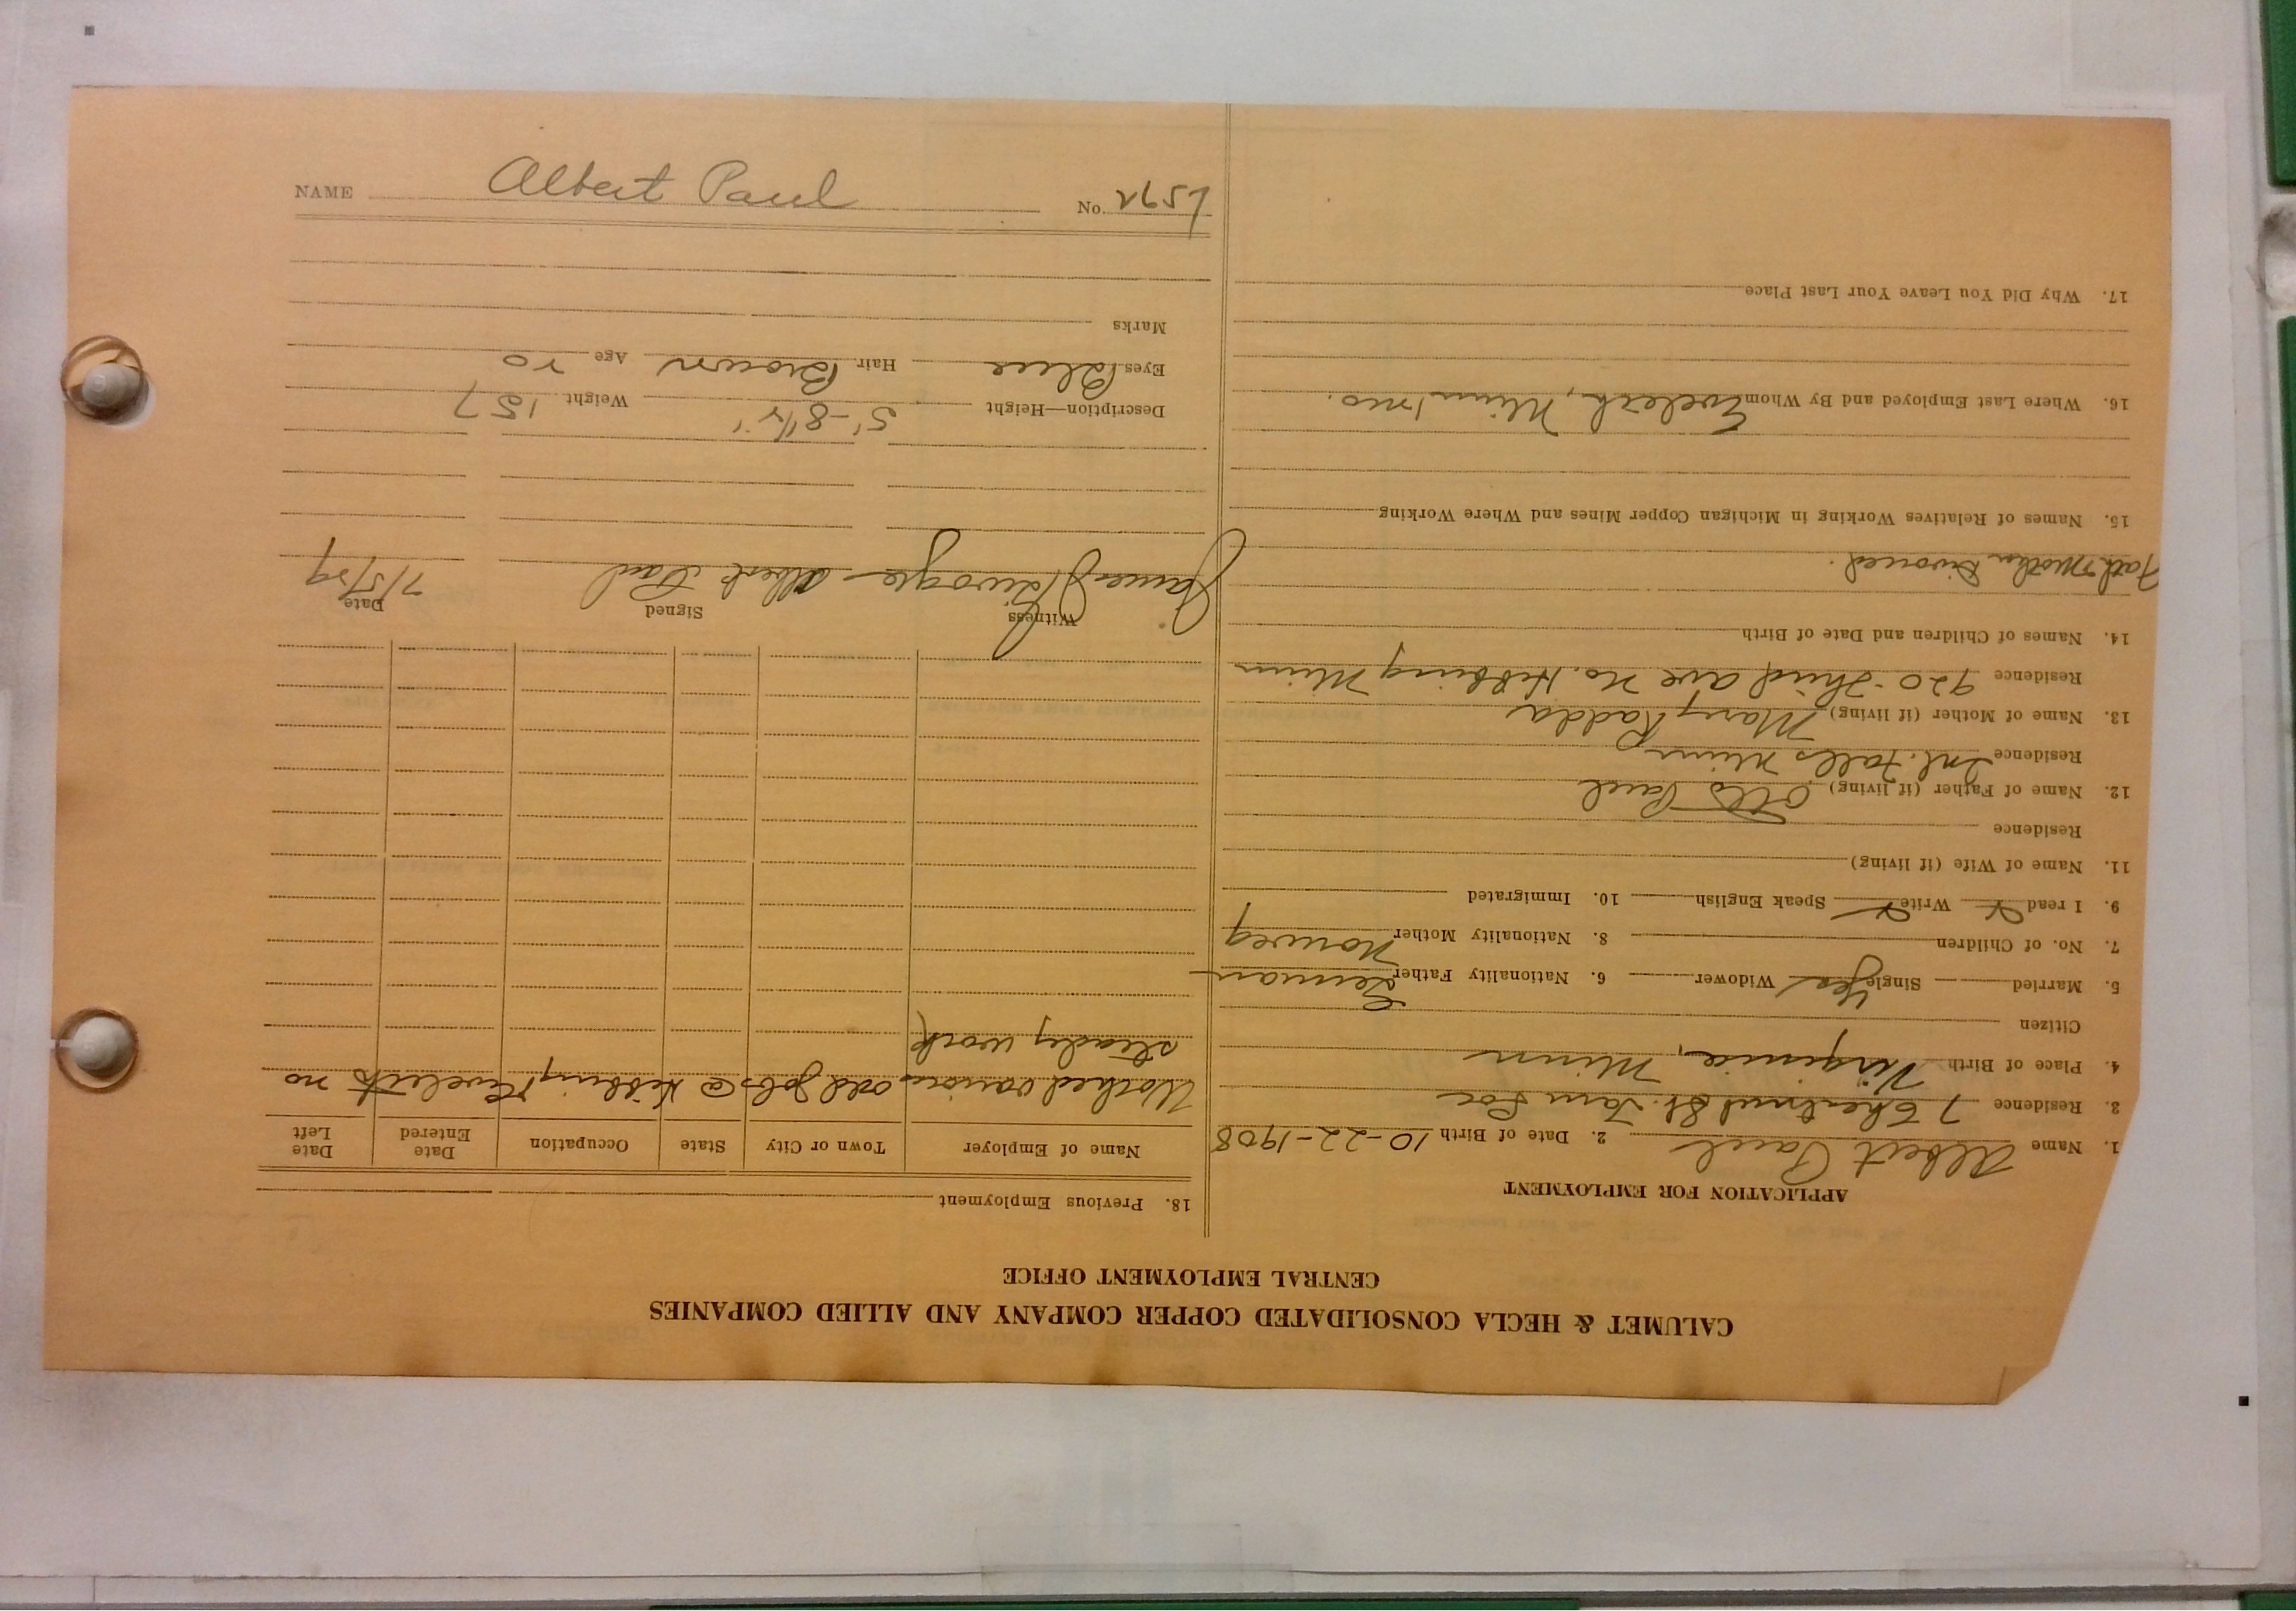 CALUMET & HECLA CONSOLIDATED COPPER COMPANY AND ALLIED COMPANIES
CENTRAL EMPLOYMENT OFFICE
APPLICATION FOR EMPLOYMENT
1. Name Albert Paul 2. Date of Birth 10-22-1908
3. Residence 7 Chestnut St. Tam Loc
4. Place of Birth Virginia, Minn
Citizen
5. Married Single Yes Widower 6. Nationality Father German
7. No. of Children 8. Nationality Mother Norweg
9. I read Write Speak English 10. Immigrated
11. Name of Wife (if living)
Residence
12. Name of Father (if living) Otto Paul
Residence Int. Falls Minn
13. Name of Mother (if living) Mary Radda
Residence 920-Third ave No. Hibbing Minn
14. Names of Children and Date of Birth
Fath & Mother Divorced.
15. Names of Relatives Working in Michigan Copper Mines and Where Working
16. Where Last Employed and By Whom Eveleth, Minn
17. Why Did You Leave Your Last Place
18. Previous Employment
Name of Employer Town or City State Occupation Date Entered Date Left
Worked various odd jobs @ Hibbing & Eveleth no
steady work
Witness Signed Date
James Albert Paul 7/5/29
Description—Height 5'-8½" Weight 157
Eyes Blue Hair Brown Age 20
Marks
NAME Albert Paul No.